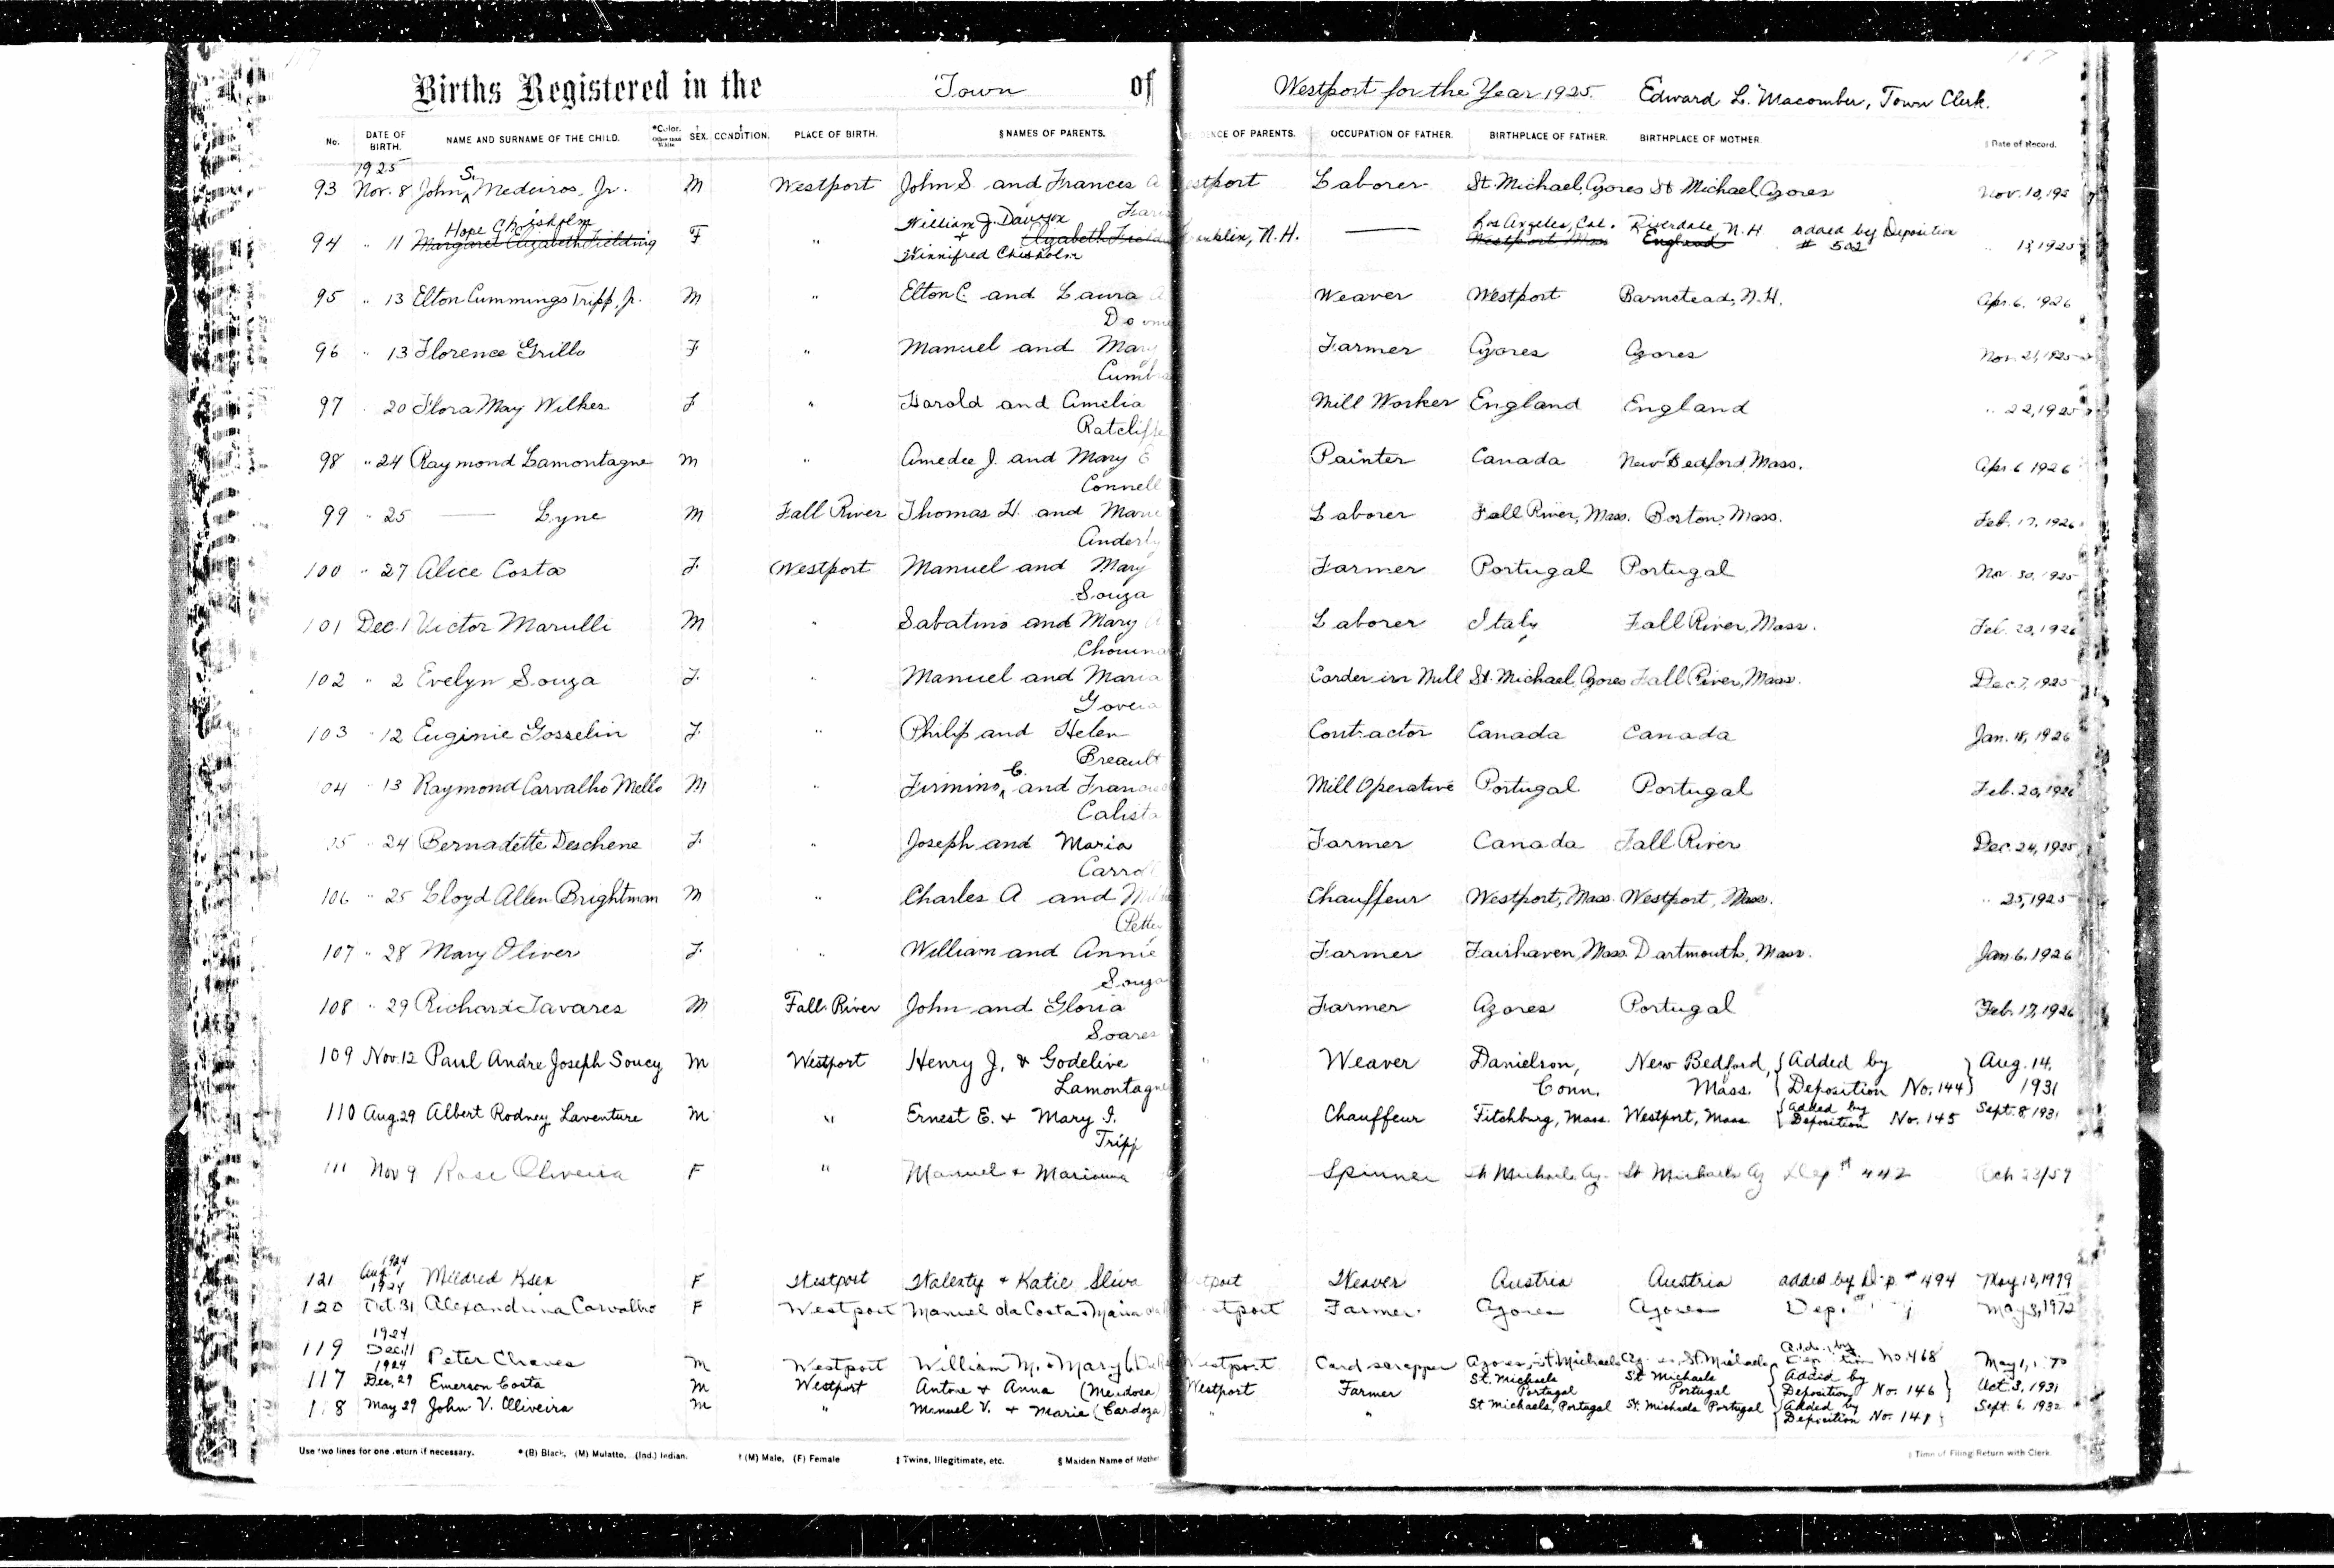 Births Registered in the Town of Westport for the Year 1925. Edward L. Macomber, Town Clerk.
No. DATE OF BIRTH. NAME AND SURNAME OF THE CHILD. *Color. Other than White SEX. CONDITION. PLACE OF BIRTH. § NAMES OF PARENTS. OF PARENTS. OCCUPATION OF FATHER. BIRTHPLACE OF FATHER. BIRTHPLACE OF MOTHER. Date of Record.
1925
93 Nov. 8 John S. Medeiros, Jr. M Westport John S. and Frances A Laborer St. Michael, Azores St Michael, Azores Nov. 10, 192
Hope Chisholm William J. Dawson Los Angeles, Cal. Riverdale, N.H added by Deposition
94 " 11 Margaret Elizabeth Fielding F " + Elizabeth N.H. —— Westport Mass England # 502 13, 1925
Winnifred Chisholm
95 " 13 Elton Cummings Tripp, Jr. M " Elton C. and Laura Weaver Westport Barnstead, N.H. Apr. 6, 1926
96 " 13 Florence Grillo F " Manuel and Mary Farmer Azores Azores Nov. 21, 1925
97 20 Flora May Wilkes F " Harold and Amelia Mill Worker England England " 22, 1925
Ratcliffe
98 " 24 Raymond Lamontagne M " Amedee J. and Mary E Painter Canada New Bedford, Mass. Apr. 6 1926
Connell
99 " 25 —— Lyne M Fall River Thomas H. and Marie Laborer Fall River, Mass. Boston, Mass. Feb. 17, 1926
100 " 27 Alice Costa F. Westport Manuel and Mary Farmer Portugal Portugal Nov. 30, 1925
Souza
101 Dec. 1 Victor Marulli M " Sabatino and Mary Laborer Italy Fall River, Mass. Feb. 20, 1926
102 " 2 Evelyn Souza F. " Manuel and Maria Carder in Mill St. Michael, Azores Fall River, Mass. Dec. 7, 1925
103 " 12 Euginie Gosselin F. " Philip and Helen Contractor Canada Canada Jan. 18, 1926
Breault
04 " 13 Raymond Carvalho Mello M " Firmino C. and Mill Operative Portugal Portugal Feb. 20, 1926
Calista
05 " 24 Bernadette Deschene F. " Joseph and Maria Farmer Canada Fall River Dec. 24, 1925
106 " 25 Lloyd Allen Brightman M " Charles A and Chauffeur Westport, Mass. Westport, Mass. " 25, 1925
107 " 28 Mary Oliver F. " William and Annie Farmer Fairhaven, Mass. Dartmouth, Mass. Jan. 6, 1926
Souza
108 " 29 Richard Tavares M Fall River John and Gloria Farmer Azores Portugal Feb. 17, 1926
Soares
109 Nov. 12 Paul Andre Joseph Soucy M Westport Henry J. & Godelive " Weaver Danielson, New Bedford, Added by Aug. 14,
Lamontagne Conn. Mass. Deposition No. 144 1931
110 Aug. 29 Albert Rodney Laventure M " Ernest E. & Mary I. Chauffeur Fitchburg, Mass. Westport, Mass. Added by Deposition No. 145 Sept. 8, 1931
Tripp
111 Nov 9 Rose Oliveira F " Manuel & Marianna Spinner St Michaels Az. St Michaels Az Dep # 442 Oct 23/59
1924
121 Aug. 7 Mildred Ksen F Westport Walenty & Katie Sliva Weaver Austria Austria added by Dep. # 494 May 12, 1979
1924
120 Oct. 31 Alexandrina Carvalho F Westport Manuel da Costa & Maria Farmer. Azores Azores Dep. May 8, 1972
1924
119 Dec. 11 Peter Chaves M Westport William M. & Mary Westport Card scrapper Azores, St. Michaels St. Michaels No. 468 May 1,
1924
117 Dec. 29 Emerson Costa M Westport Antone & Anna (Mendosa) Westport Farmer St. Michaels Portugal St Michaels Portugal Added by Deposition No. 146 Oct. 3, 1931
118 May 29 John V. Oliveira M " Manuel V. & Maria (Cardoza) " " St Michaels, Portugal St. Michaels Portugal Added by Deposition No. Sept. 6, 1932
Use two lines for one return if necessary. *(B) Black, (M) Mulatto, (Ind.) Indian. † (M) Male, (F) Female ‡ Twins, Illegitimate, etc. § Maiden Name of Mother Time of Filing Return with Clerk.